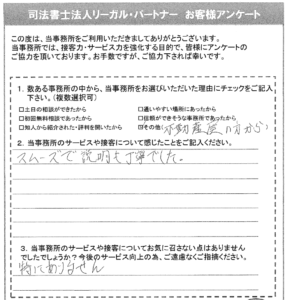 司法書士法人リーガル・パートナー お客様アンケート
この度は、当事務所をご利用いただきましてありがとうございます。
当事務所では、接客力・サービス力を強化する目的で、皆様にアンケートの
ご協力を頂いております。お手数ですが、ご協力下されば幸いです。
1. 数ある事務所の中から、当事務所をお選びいただいた理由にチェックをご記入
下さい。(複数選択可)
□土日の相談ができたから □通いやすい場所にあったから
□初回無料相談であったから □信頼ができそうな事務所であったから
□知人から紹介された・評判を聞いたから □その他(不動産屋の方から)
2. 当事務所のサービスや接客について感じたことをご記入ください。
スムーズで説明も丁寧でした。
3. 当事務所のサービスや接客についてお気に召さない点はありません
でしたでしょうか?今後のサービス向上の為、ご遠慮なくご指摘ください。
特にありません